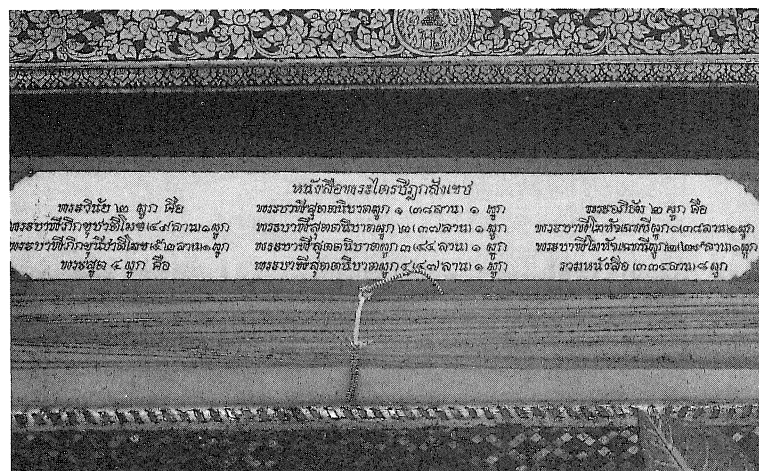 หนังสือพระไตรปิฎกสังเขป
พระวินัย ๒ ผูก คือ
พระบาฬีภิกขุปาติโมข (๔๙ลาน) ๑ผูก
พระบาฬีภิกขุนีปาติโมข(๕๒ลาน)๑ผูก
พระสูต ๔ ผูก คือ
พระบาฬีสุตตนิบาตผูก ๑ (๓๘ลาน) ๑ ผูก
พระบาฬีสุตตนิบาตผูก ๒ (๓๗ลาน) ๑ ผูก
พระบาฬีสุตตนิบาตผูก ๓ (๔๔ลาน) ๑ ผูก
พระบาฬีสุตตนิบาตผูก ๔ (๔๗ลาน) ๑ ผูก
พระอภิธัม ๒ ผูก คือ
ผูก ๑ (๓๘ลาน) ๑ผูก
ผูก ๒ (๒๙ลาน) ๑ผูก
รวมหนังสือ (๓๓๔ลาน) ๘ ผูก